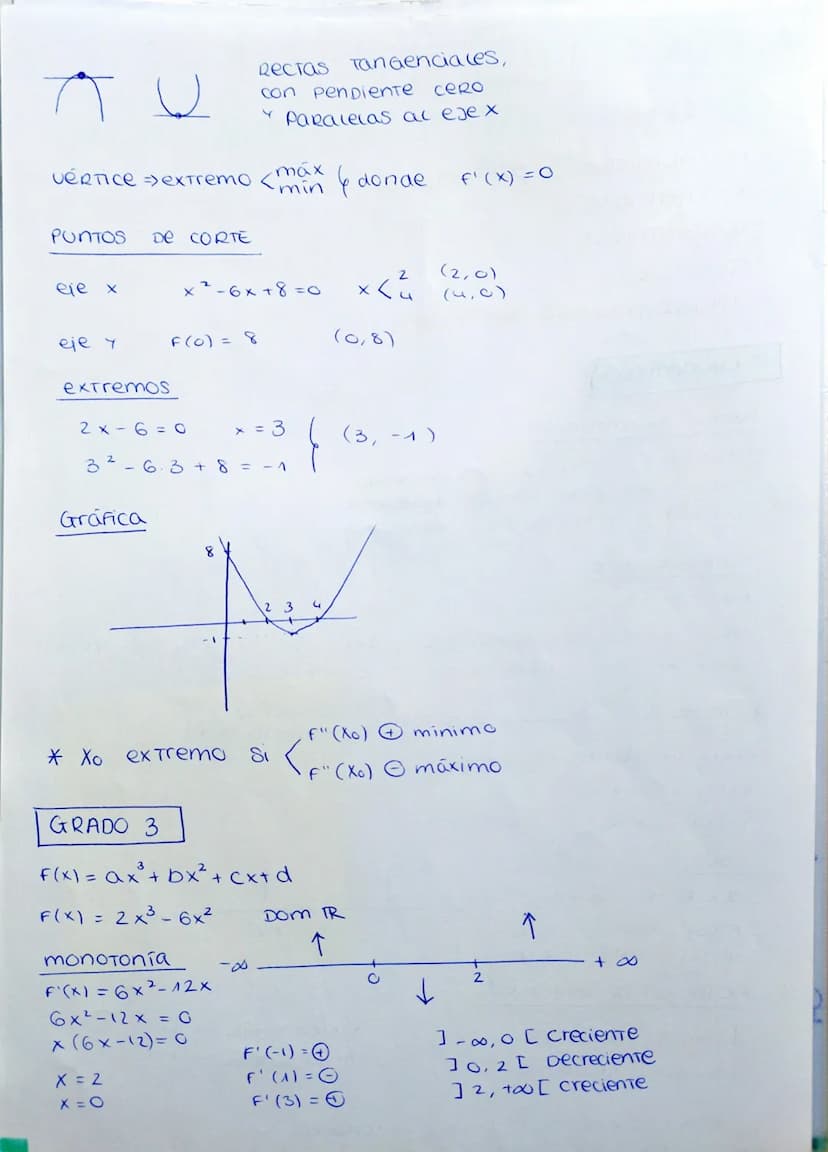 Rectas tangenciales,
con pendiente cero
y paralelas al eje x
Vértice ⇒ extremo < máx mín donde f'(x) = 0
PUNTOS DE CORTE
eje x x² - 6x + 8 = 0 x < 2 4 (2,0) (4,0)
eje y f(0) = 8 (0,8)
extremos
2x - 6 = 0 x = 3 } (3, -1)
3² - 6·3 + 8 = -1
Gráfica
8
2 3 4
-1
* x₀ extremo si < f''(x₀) ⊕ mínimo
f''(x₀) ⊖ máximo
GRADO 3
f(x) = ax³ + bx² + cx + d
f(x) = 2x³ - 6x² Dom ℝ
↑ ↑
monotonía -∞ 0 ↓ 2 +∞
f'(x) = 6x² - 12x
6x² - 12x = 0
x(6x - 12) = 0
x = 2
x = 0
f'(-1) = ⊕
f'(1) = ⊖
f'(3) = ⊕
]-∞, 0[ creciente
]0, 2[ Decreciente
]2, +∞[ creciente